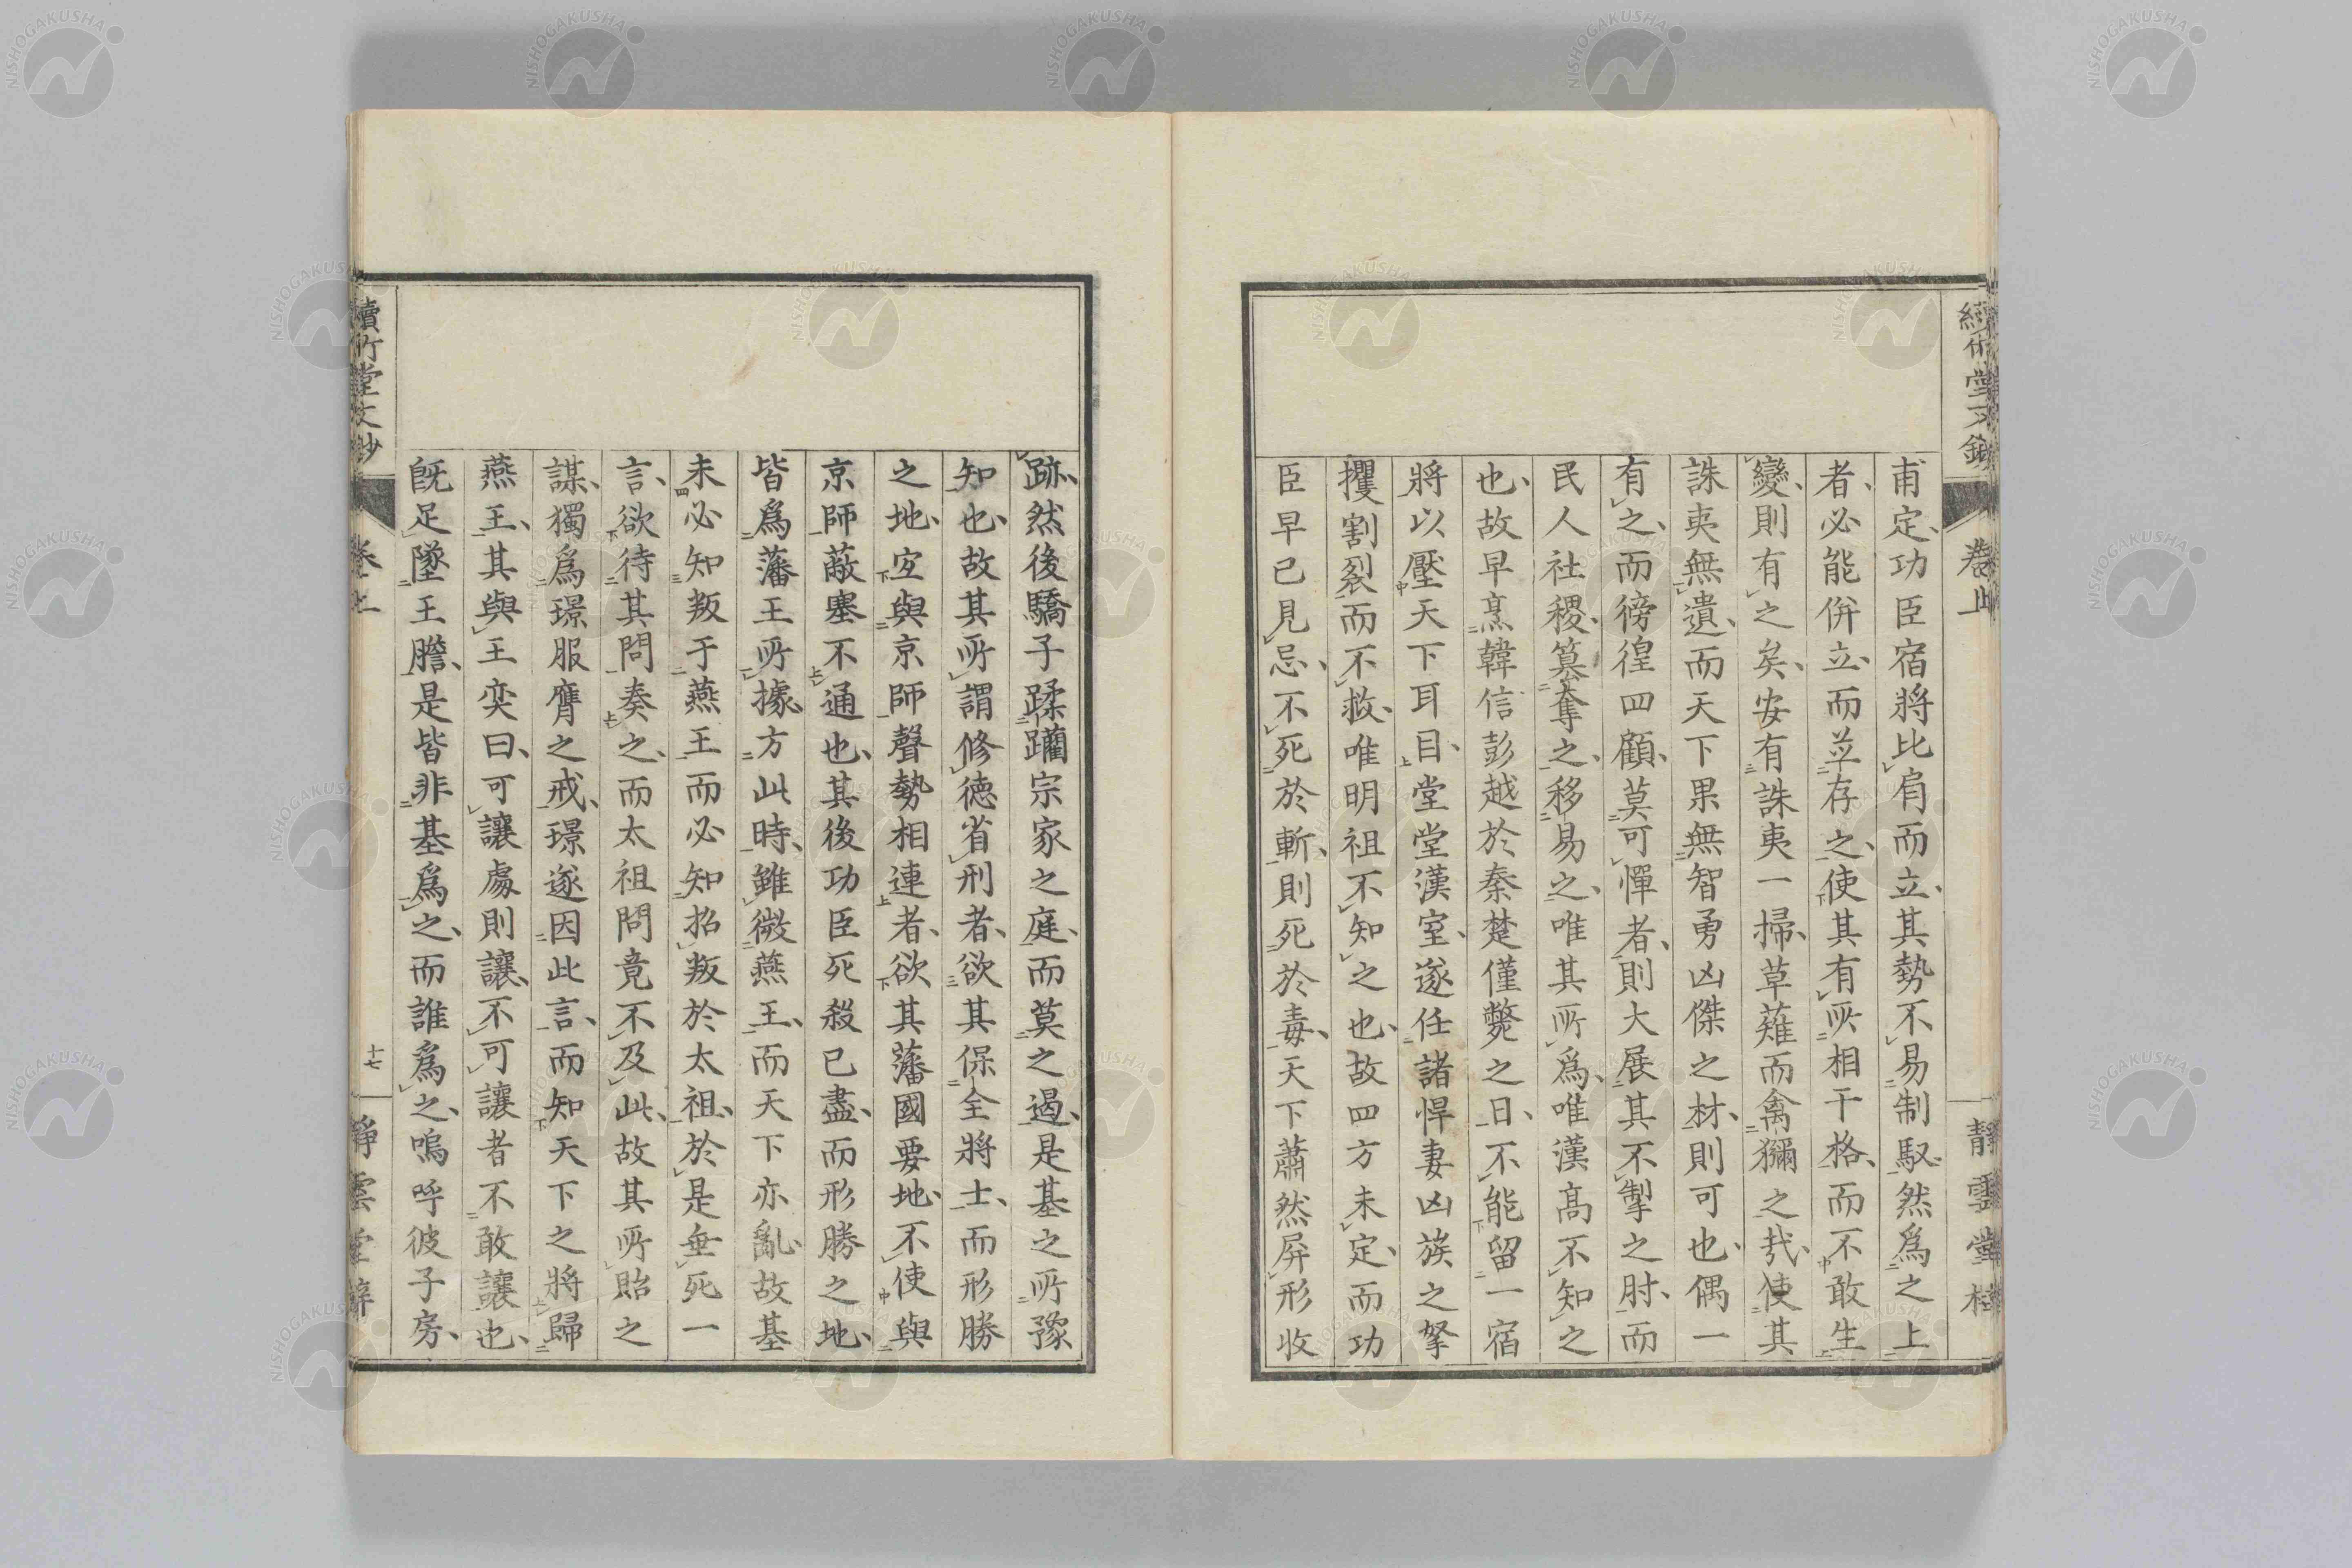 甫定、功臣宿將比肩而立、其勢不易制馭、然爲之上
者、必能併立、而並存之、使其有所相干格、而不敢生
變、則有之矣、安有誅夷一掃、草薙而禽獮之哉、使其
誅夷無遺、而天下果無智勇凶傑之材、則可也、偶一
有之、而徬徨四顧、莫可憚者、則大展其不掣之肘、而
民人社稷、篡奪之、移易之、唯其所爲、唯漢高不知之
也、故早烹韓信彭越於秦楚僅斃之日、不能留一宿
將以壓天下耳目、堂堂漢室、遂任諸悍妻凶族之拏
攫割裂而不救、唯明祖不知之也、故四方未定、而功
臣早已見忌、不死於斬、則死於毒、天下蕭然屏形收
跡、然後驕子蹂躪宗家之庭、而莫之遏、是基之所豫
知也、故其所謂修德省刑者、欲其保全將士、而形勝
之地、宜與京師聲勢相連者、欲其藩國要地、不使與
京師蔽塞不通也、其後功臣死殺已盡、而形勝之地、
皆爲藩王所據、方此時、雖微燕王、而天下亦亂、故基
未必知叛于燕王、而必知招叛於太祖、於是垂死一
言、欲待其問奏之、而太祖問竟不及此、故其所貽之
謀、獨爲璟服膺之戒、璟遂因此言、而知天下之將歸
燕王、其與王奕曰、可讓處則讓、不可讓者不敢讓也、
旣足墜王膽、是皆非基爲之、而誰爲之、嗚呼彼子房、
續竹堂文鈔
卷上
十七
靜雲堂梓